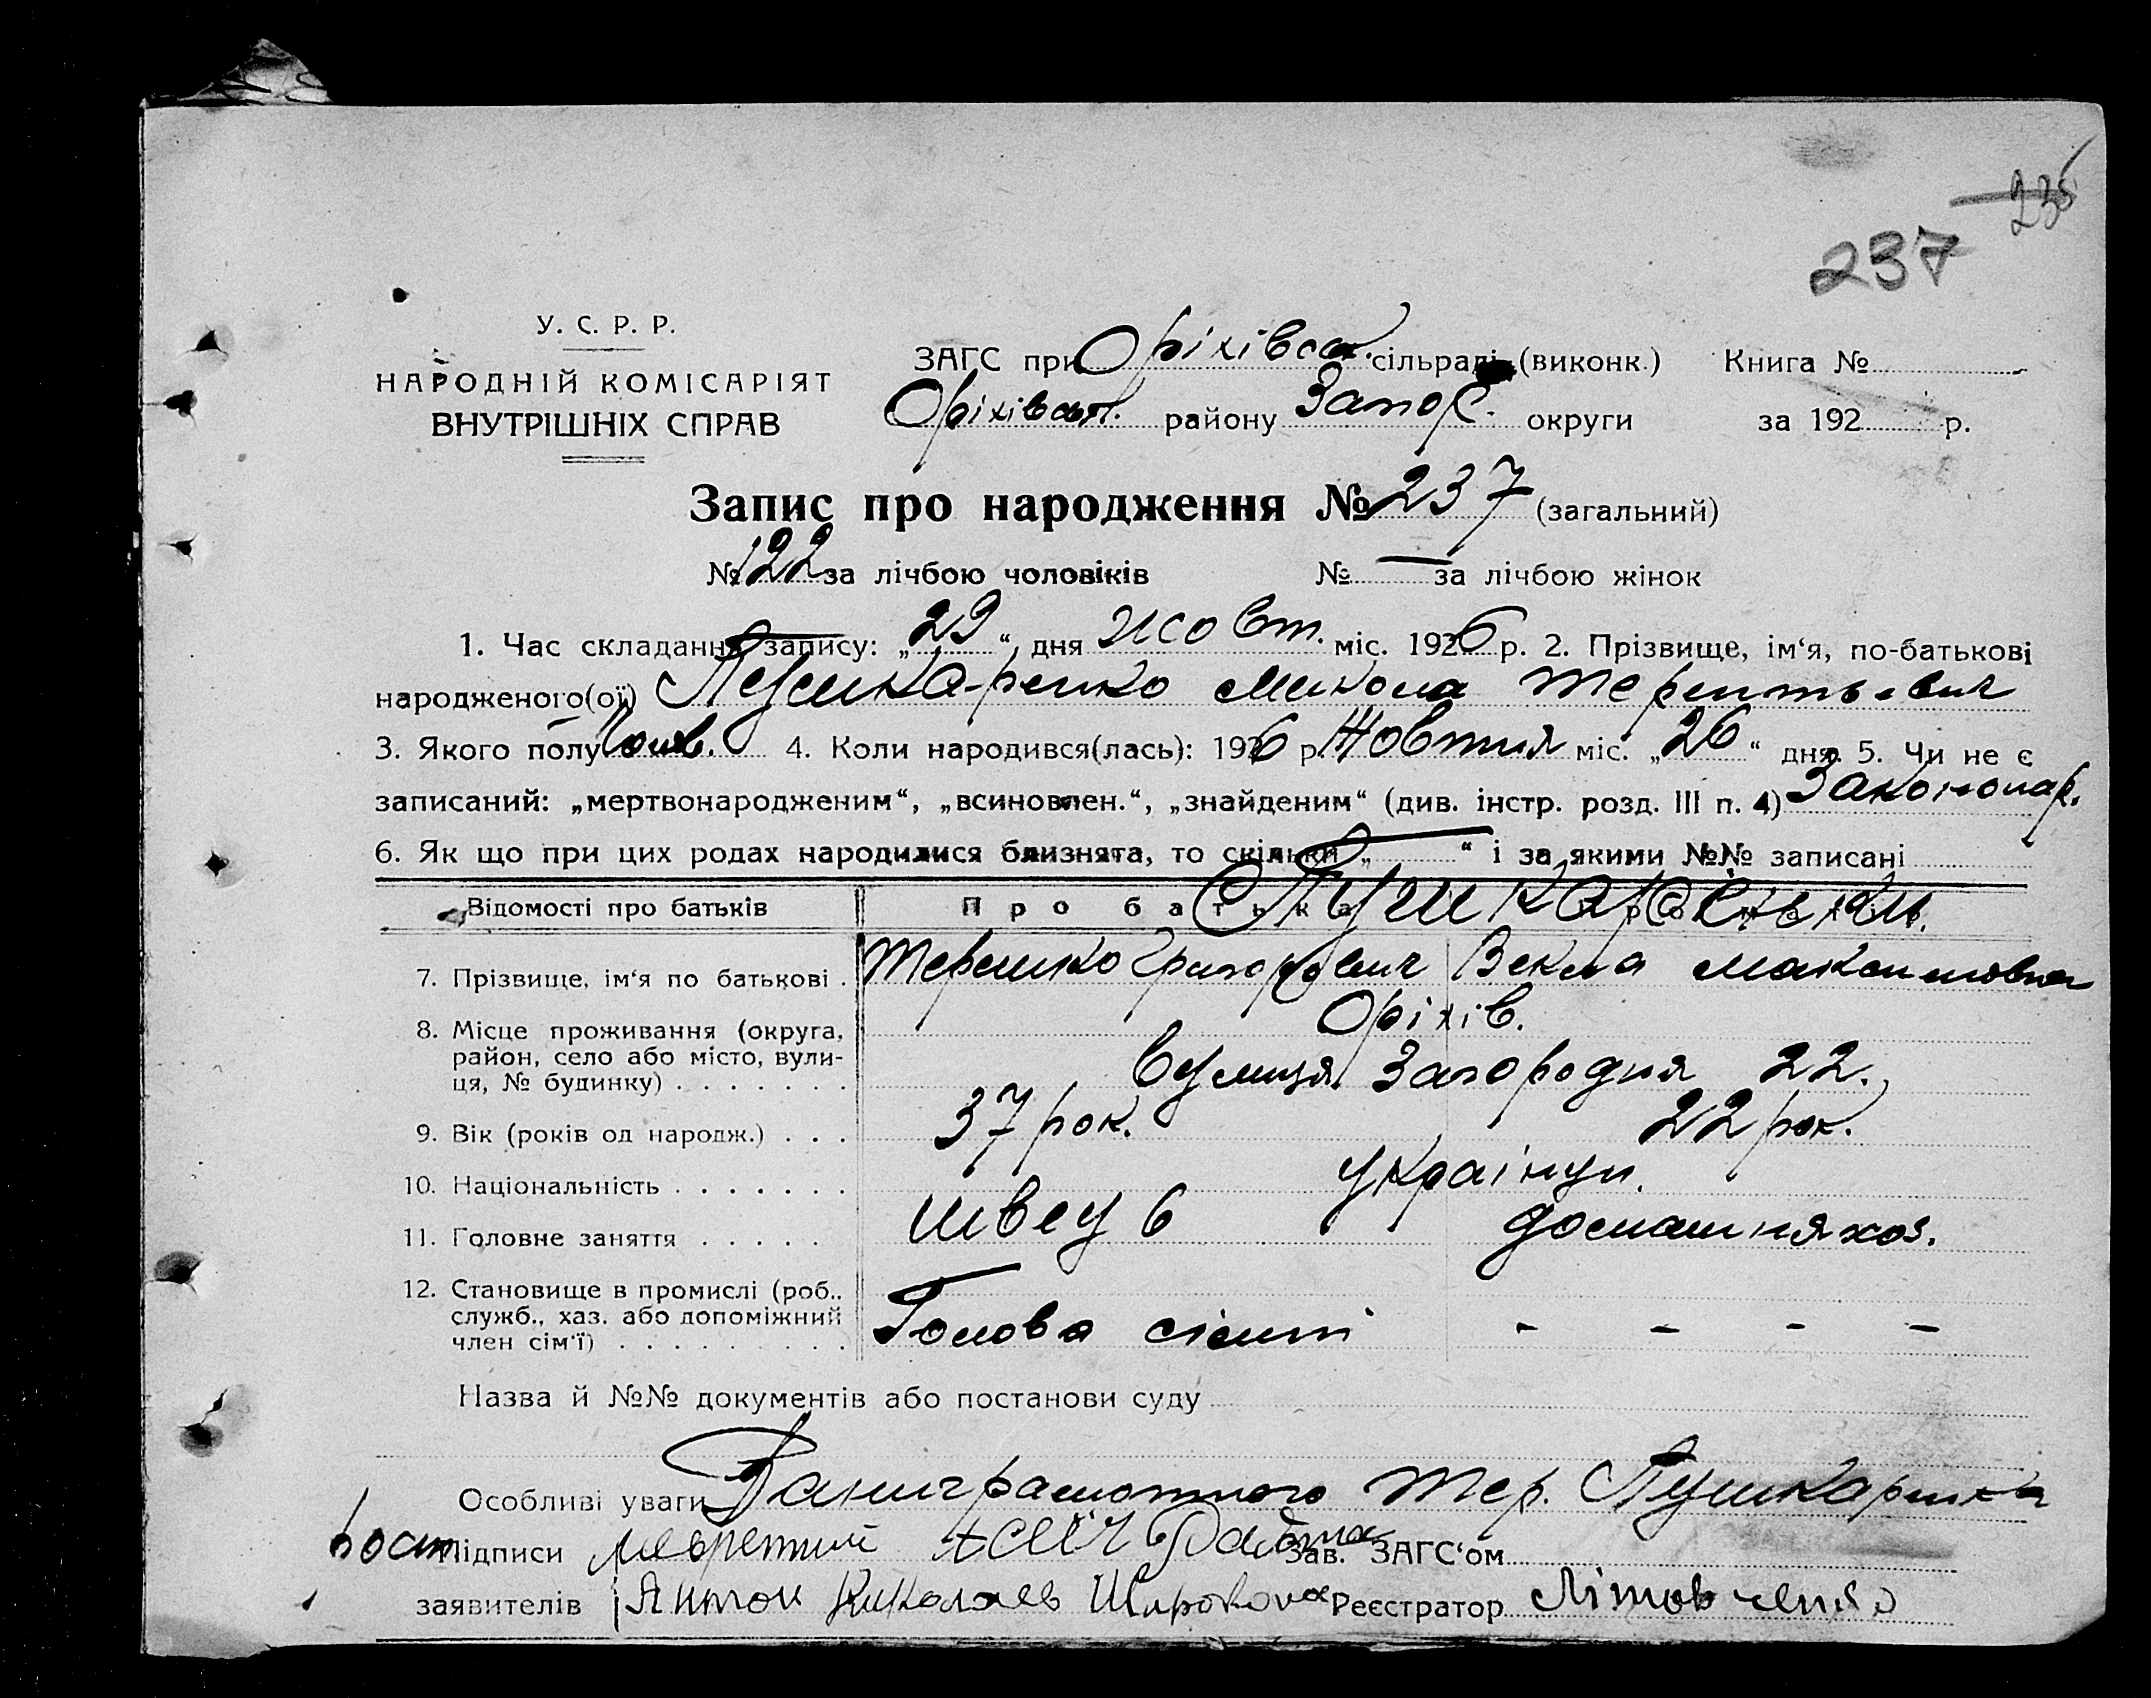 235
237
У. С. Р. Р.
НАРОДНІЙ КОМІСАРІЯТ
ВНУТРІШНІХ СПРАВ
ЗАГС при Оріхівськ. сільраді (виконк.) Книга №
Оріхівськ. району Запор. округи за 192 р.
Запис про народження № 237 (загальний)
№ 122 за лічбою чоловіків № — за лічбою жінок
1. Час складання запису: „29“ дня жовт. міс. 1926 р. 2. Прізвище, ім‘я, по-батькові
народженого(ої) Пушкаренко Микола Терентьевич
3. Якого полу Чолв. 4. Коли народився(лась): 1926 р. Жовтня міс. „26“ дня. 5. Чи не є
записаний: „мертвонародженим“, „всиновлен.“, „знайденим“ (див. інстр. розд. III п. 4) Законопар.
6. Як що при цих родах народилися близнята, то скільки „ “ і за якими №№ записані
Відомості про батьків Про батька Пушкаренки
7. Прізвище, ім‘я по батькові . Терешко Григорович Векла Максимовна
8. Місце проживання (округа, Оріхів.
район, село або місто, вули-
ця, № будинку) . . . . . . . вулиця Загородня 22.
9. Вік (років од народж.) . . . 37 рок. 22 рок.
10. Національність . . . . . . . українци.
11. Головне заняття . . . . . швець домашня хоз.
12. Становище в промислі (роб.,
служб., хаз. або допоміжний
член сім‘ї) . . . . . . . . . Голова сімті - - - -
Назва й №№ документів або постанови суду
Особливі уваги За неграмотного Тер. Пушкаренка
Підписи Зав. ЗАГС‘ом
заявителів Антон Николаев Широкона Реєстратор Літовченко